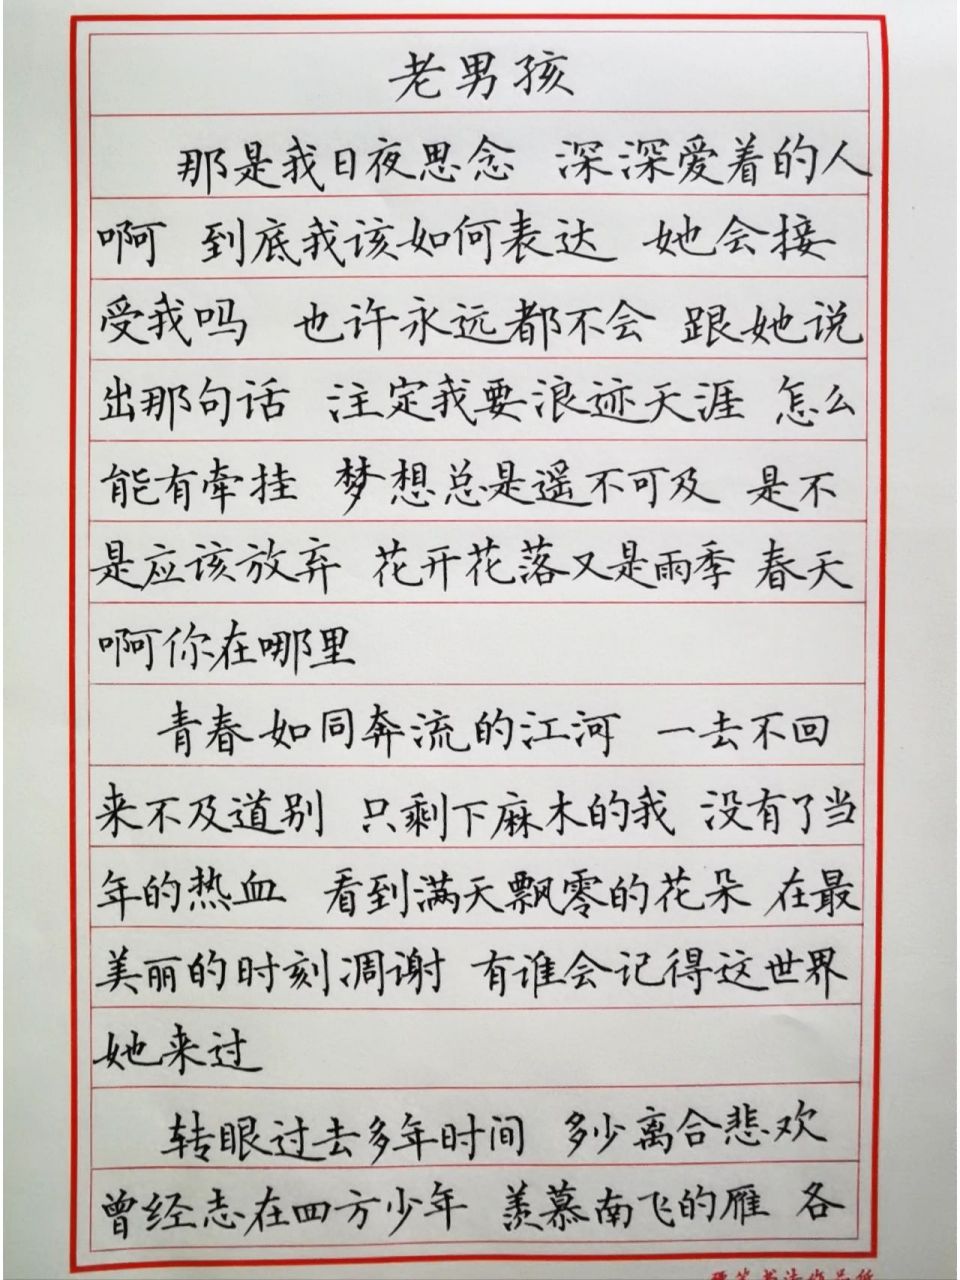 老男孩
那是我日夜思念 深深爱着的人
啊 到底我该如何表达 她会接
受我吗 也许永远都不会 跟她说
出那句话 注定我要浪迹天涯 怎么
能有牵挂 梦想总是遥不可及 是不
是应该放弃 花开花落又是雨季 春天
啊你在哪里
青春如同奔流的江河 一去不回
来不及道别 只剩下麻木的我 没有了当
年的热血 看到满天飘零的花朵 在最
美丽的时刻凋谢 有谁会记得这世界
她来过
转眼过去多年时间 多少离合悲欢
曾经志在四方少年 羡慕南飞的雁 各
硬笔书法作品纸